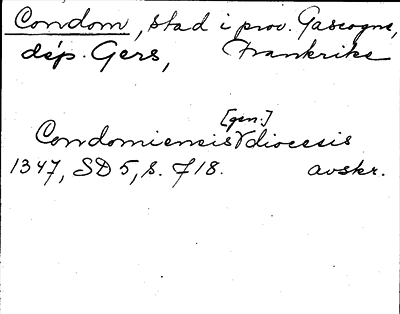 Condom, stad i prov. Gascogne,
dép. Gers, Frankrike
[gen.]
Condomiensis diocesis
1347, SD 5, s. 718. avskr.